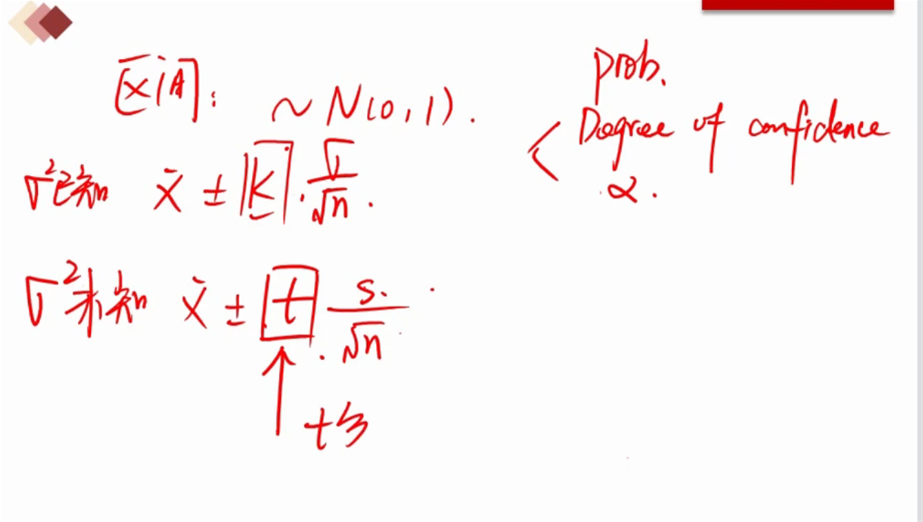 区间: ~N(0,1).
σ²已知 x̄ ± K · σ/√n .
σ²未知 x̄ ± t · s/√n
t分
prob.
Degree of confidence
α.